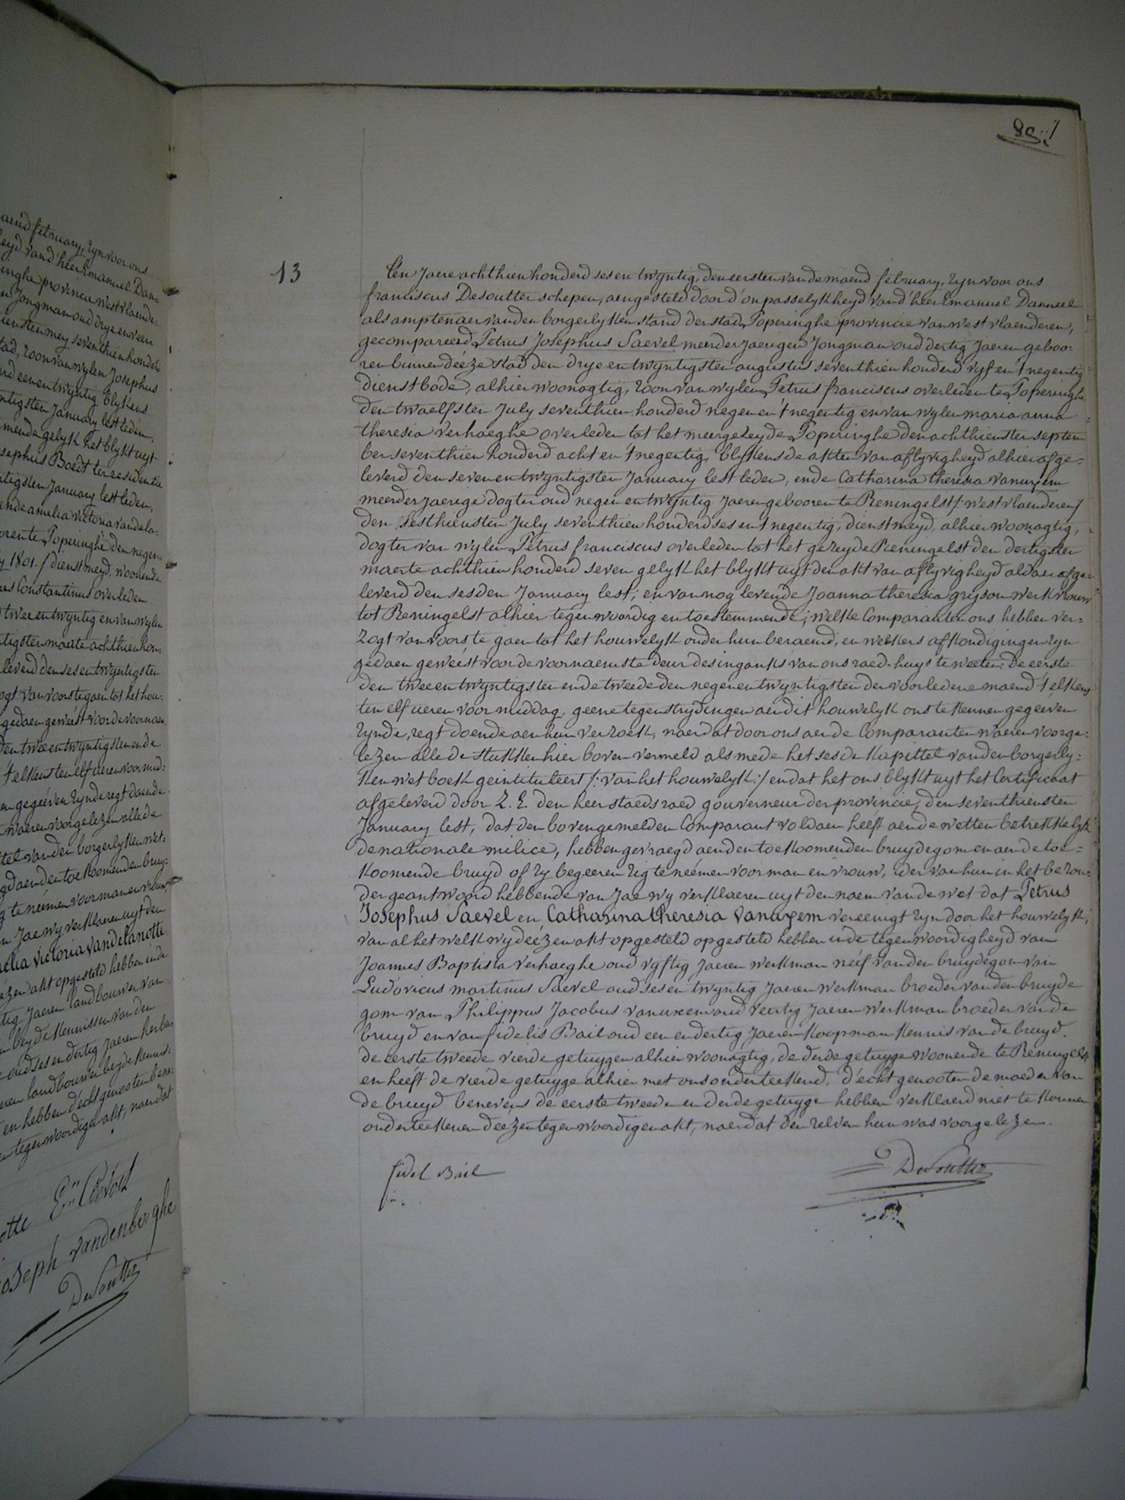 aend february, zyn voor ons
heyd van d'heer Emanuel Danne
inghe provincie west vlaende
Jongman oud drye en van
sten mey seventhien honde
tad, zoon van wylen Josephus
d een en twyntig blykens
ntigsten January lest leden,
mende gelyk het blykt uyt
sephus Boedt ten residentie
ntigsten January lest leden,
ende amelia victoria vandela
oren te Poperinghe den negen
y 1801. / dienstmeyd, woonende
es Constantinus overleden
twee en twyntig en van wylen
tigsten maerte achthien hon
leverd den ses en twyntigsten
ogt van voorstegaen tot het hou
gedaen geweest voor de voornaem
den twee en twyntigsten ende
telkens ten elf ueren voor mid
en gegeeven zynde regt doende
waeren voorgelezen alle de
ttel van den borgerlyken wet
gd aenden toekoomenden bruy
te neemen voor man en vrouw
Jae wy verklaeren uyt den
elia victoria vandelanotte
zen akt opgesteld hebben inde
tig Jaeren landbouwer van
beyde kennissen van den
oud ses en dertig Jaeren herber
en landbouwer beyde kennis
en hebben d'echtgenooten benev
tegenwoordigen akt, naer dat
otte
Joseph vandenberghe
DeSoutter
80.
13
Een Jaere achthien honderd ses en twyntig, den eersten van de maend february, zyn voor ons
franciscus DeSoutter schepen, aengesteld door d'onpasselykheyd van d'heer Emanuel Danneel
als amptenaer van den borgerlyken stand der stad Poperinghe provincie van west vlaenderen,
gecompareerd Petrus Josephus Saevel meerderjaerigen Jongman oud dertig Jaeren geboo-
ren binnen deéze stad den drye en twyntigsten augustus seventhien honderd vyf en 't negentig
dienstbode, alhier woonagtig, zoon van wylen Petrus franciscus overleden te Poperinghe
den twaelfsten July seventhien honderd negen en 't negentig en van wylen maria anna
theresia verhaeghe overleden tot het meergezeyde Poperinghe den achthienster septem
ber seventhien honderd acht en 't negentig, blykens de akten van aflyvigheyd alhier afge-
leverd den seven en twyntigsten January lest leden, ende Catharina theresia vanuxem
meerderjaerige dogter oud negen en twyntig Jaeren gebooren te Reningelst / west vlaenderen /
den sesthiensten July seventhien honderd ses en 't negentig, dienstmeyd, alhier woonagtig,
dogter van wylen Petrus franciscus overleden tot het gezeyde Reningelst den dertigsten
maerte achthien honderd seven gelyk het blykt uyt den akt van aflyvigheyd aldaer afge-
leverd den sesden January lest; en van nog levende Joanna theresia gryson werkvrouw
tot Reningelst alhier tegenwoordig en toestemmende; welke Comparanten ons hebben ver-
zogt van voors te gaen tot het houwelyk onder hun beraemd, en welkers afkondigingen zyn
gedaen geweest voor de voornaemste deur des ingangs van ons raed-huys te weeten: De eerste
den twee en twyntigsten ende tweede den negen en twyntigsten der voorledene maend telkens
ten elf ueren voor middag, geene tegenstrydingen aen dit houwelyk ons te kennen gegeeven
zynde, regt doende aen hun verzoek, naer dat door ons aen de Comparanten waeren voorge-
lezen alle de stukken hier boven vermeld als mede het sesde kapittel van den borgerly-
ken wet boek geintituleert /: van het houwelyk :/ en dat het ons blykt uyt het Certificaet
afgeleverd door Z. E. den heer staedsraed gouverneur der provincie, den seventhiensten
January lest, dat den bovengemelden Comparant voldaen heeft aen de wetten betrekkelyk
de nationale milice, hebben gevraegd aen den toekoomenden bruydegom en aen de toe-
koomende bruyd of zy begeeren zig te neemen voor man en vrouw, ider van hun in het bezon-
der geantwoord hebbende van Jae wy verklaeren uyt den naem van de wet dat Petrus
Josephus Saevel en Catharina theresia vanuxem vereenigt zyn door het houwelyk,
van al het welk wy deézen akt opgesteld opgesteld hebben inde tegenwoordigheyd van
Joannes Baptista verhaeghe oud vyftig Jaeren werkman neif van den bruydegom van
Ludovicus martinus Saevel oud ses en twyntig Jaeren werkman broeder van den bruyde
gom van Philippus Jacobus vanuxem oud veertig Jaeren werkman broeder van de
bruyd en van fidelis Bail oud een en dertig Jaeren koopman kennis van de bruyd.
de eerste tweede vierde getuygen alhier woonagtig, de derde getuyge woonende te Reningelst
en heeft de vierde getuyge alhier met ons onderteekend, d'echtgenooten de moeder van
de bruyd benevens de eerste tweede en derde getuyge hebben verklaerd niet te konnen
onderteekenen deézen tegenwoordigen akt, naer dat den zelven hun was voorgelezen.
fidel Bail
DeSoutter